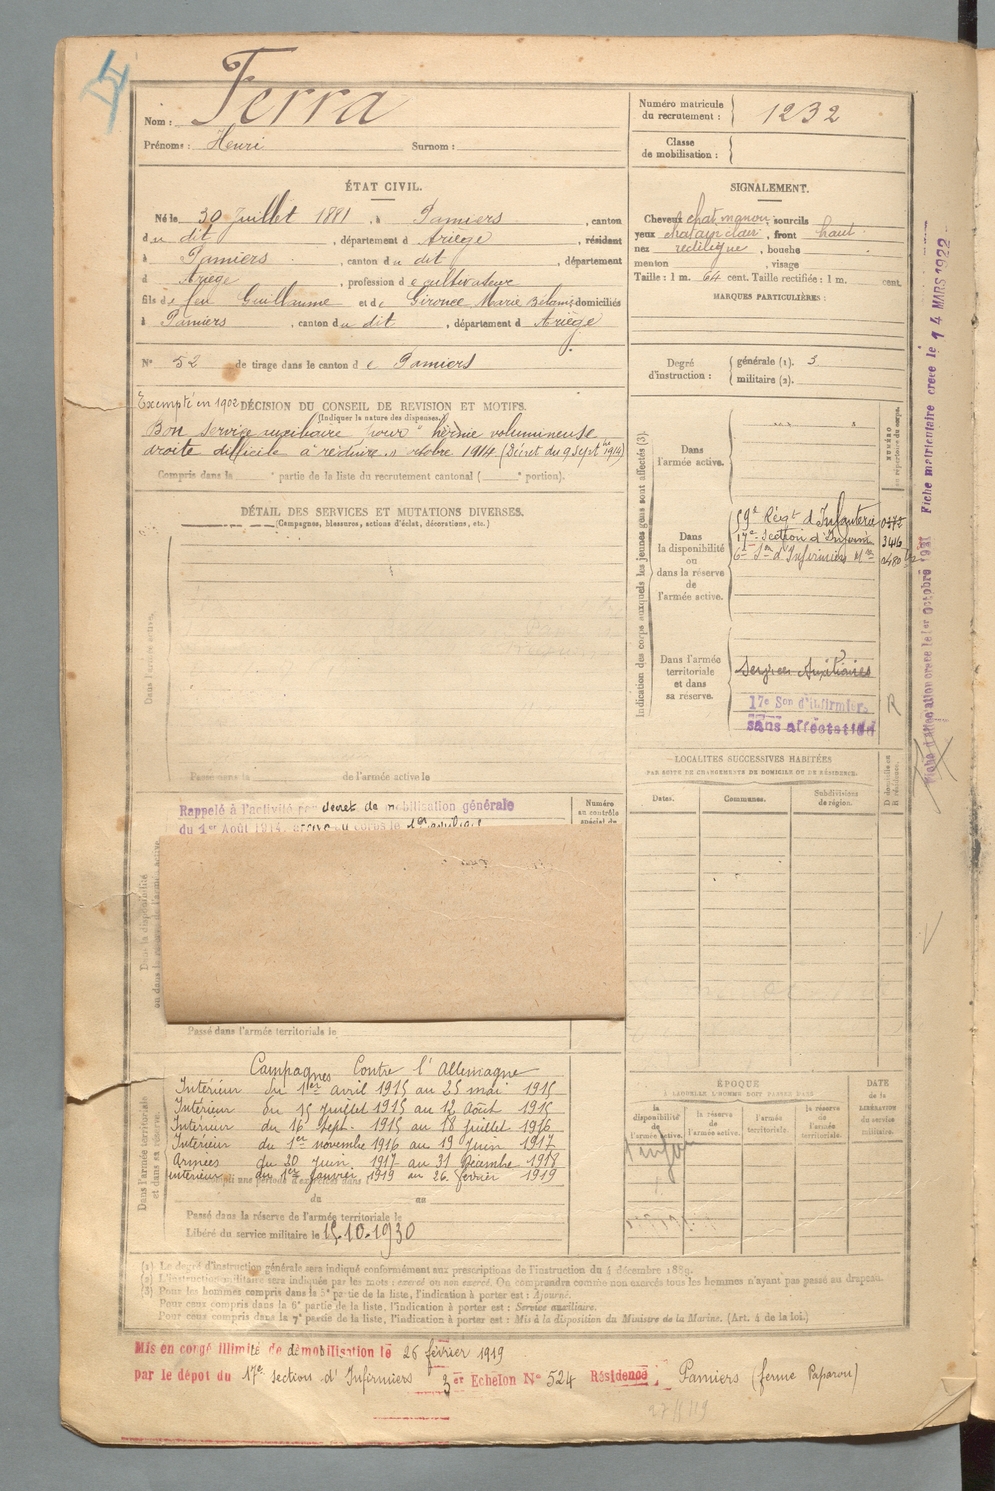 Nom : Ferra
Prénoms : Henri Surnom :
Numéro matricule du recrutement : 1232
Classe de mobilisation :
ÉTAT CIVIL.
Né le 30 Juillet 1881, à Pamiers, canton
du dit, département d Ariège, résidant
à Pamiers, canton du dit, département
d Ariège, profession de cultivateur
fils de feu Guillaume et de Gironce Marie domiciliés
à Pamiers, canton du dit, département d Ariège
N° 52 de tirage dans le canton de Pamiers
SIGNALEMENT.
Cheveux chat. marron, sourcils
yeux chatain clair, front haut
nez rectiligne, bouche
menton , visage
Taille : 1 m. 64 cent. Taille rectifiée : 1 m. cent.
MARQUES PARTICULIÈRES :
Degré d'instruction : générale (1). 3
militaire (2).
Exempté en 1902 DÉCISION DU CONSEIL DE REVISION ET MOTIFS.
(Indiquer la nature des dispenses.)
Bon service auxiliaire pour "hernie volumineuse
droite difficile à réduire" octobre 1914 (Décret du 9 Sept bre 1914)
Compris dans la e partie de la liste du recrutement cantonal ( e portion).
DÉTAIL DES SERVICES ET MUTATIONS DIVERSES.
(Campagnes, blessures, actions d'éclat, décorations, etc.)
Dans l'armée active.
Passé dans la de l'armée active le
Indication des corps auxquels les jeunes gens sont affectés (3)
NUMÉRO
au répertoire du corps.
Dans l'armée active.
Dans la disponibilité ou dans la réserve de l'armée active.
59e Régt d'Infanterie
17e Section d'Infirm. 3416
6e Son d'Infirmiers Mres
Dans l'armée territoriale et dans sa réserve.
Services Auxiliaires
17e Son d'infirmiers
sans affectation
R
Fiche d'allocation créée le 1er Octobre Fiche matriculaire créée le 14 MARS 1922
LOCALITÉS SUCCESSIVES HABITÉES
PAR SUITE DE CHANGEMENTS DE DOMICILE OU DE RÉSIDENCE.
Dates. Communes. Subdivisions de région. D domicile ou R résidence.
Rappelé à l'activité par décret de mobilisation générale
du 1er Août 1914, arrivé au corps le 1er avril 1915
Numéro au contrôle spécial du
Dans la disponibilité ou dans la réserve de l'armée active
Passé dans l'armée territoriale le
Dans l'armée territoriale et dans sa réserve.
Campagnes Contre l'Allemagne
Intérieur du 1er avril 1915 au 25 mai 1915
Intérieur du 15 Juillet 1915 au 12 Août 1915
Intérieur du 16 Sept. 1915 au 18 Juillet 1916
Intérieur du 1er novembre 1916 au 19 Juin 1917
Armées du 20 Juin 1917 au 31 Décembre 1918
Intérieur du 1er Janvier 1919 au 26 février 1919
du au
Passé dans la réserve de l'armée territoriale le
Libéré du service militaire le 15.10.1930
ÉPOQUE
À LAQUELLE L'HOMME DOIT PASSER DANS
la disponibilité de l'armée active.
la réserve de l'armée active.
l'armée territoriale.
la réserve de l'armée territoriale.
DATE de la LIBÉRATION du service militaire.
(1) Le degré d'instruction générale sera indiqué conformément aux prescriptions de l'instruction du 4 décembre 1889.
(2) L'instruction militaire sera indiquée par les mots : exercé ou non exercé. On comprendra comme non exercés tous les hommes n'ayant pas passé au drapeau.
(3) Pour les hommes compris dans la 5e partie de la liste, l'indication à porter est : Ajourné.
Pour ceux compris dans la 6e partie de la liste, l'indication à porter est : Service auxiliaire.
Pour ceux compris dans la 7e partie de la liste, l'indication à porter est : Mis à la disposition du Ministre de la Marine. (Art. 4 de la loi.)
Mis en congé illimité de démobilisation le 26 février 1919
par le dépôt du 17e section d'Infirmiers 3er Echelon N° 524 Résidence : Pamiers (ferme Paparou)